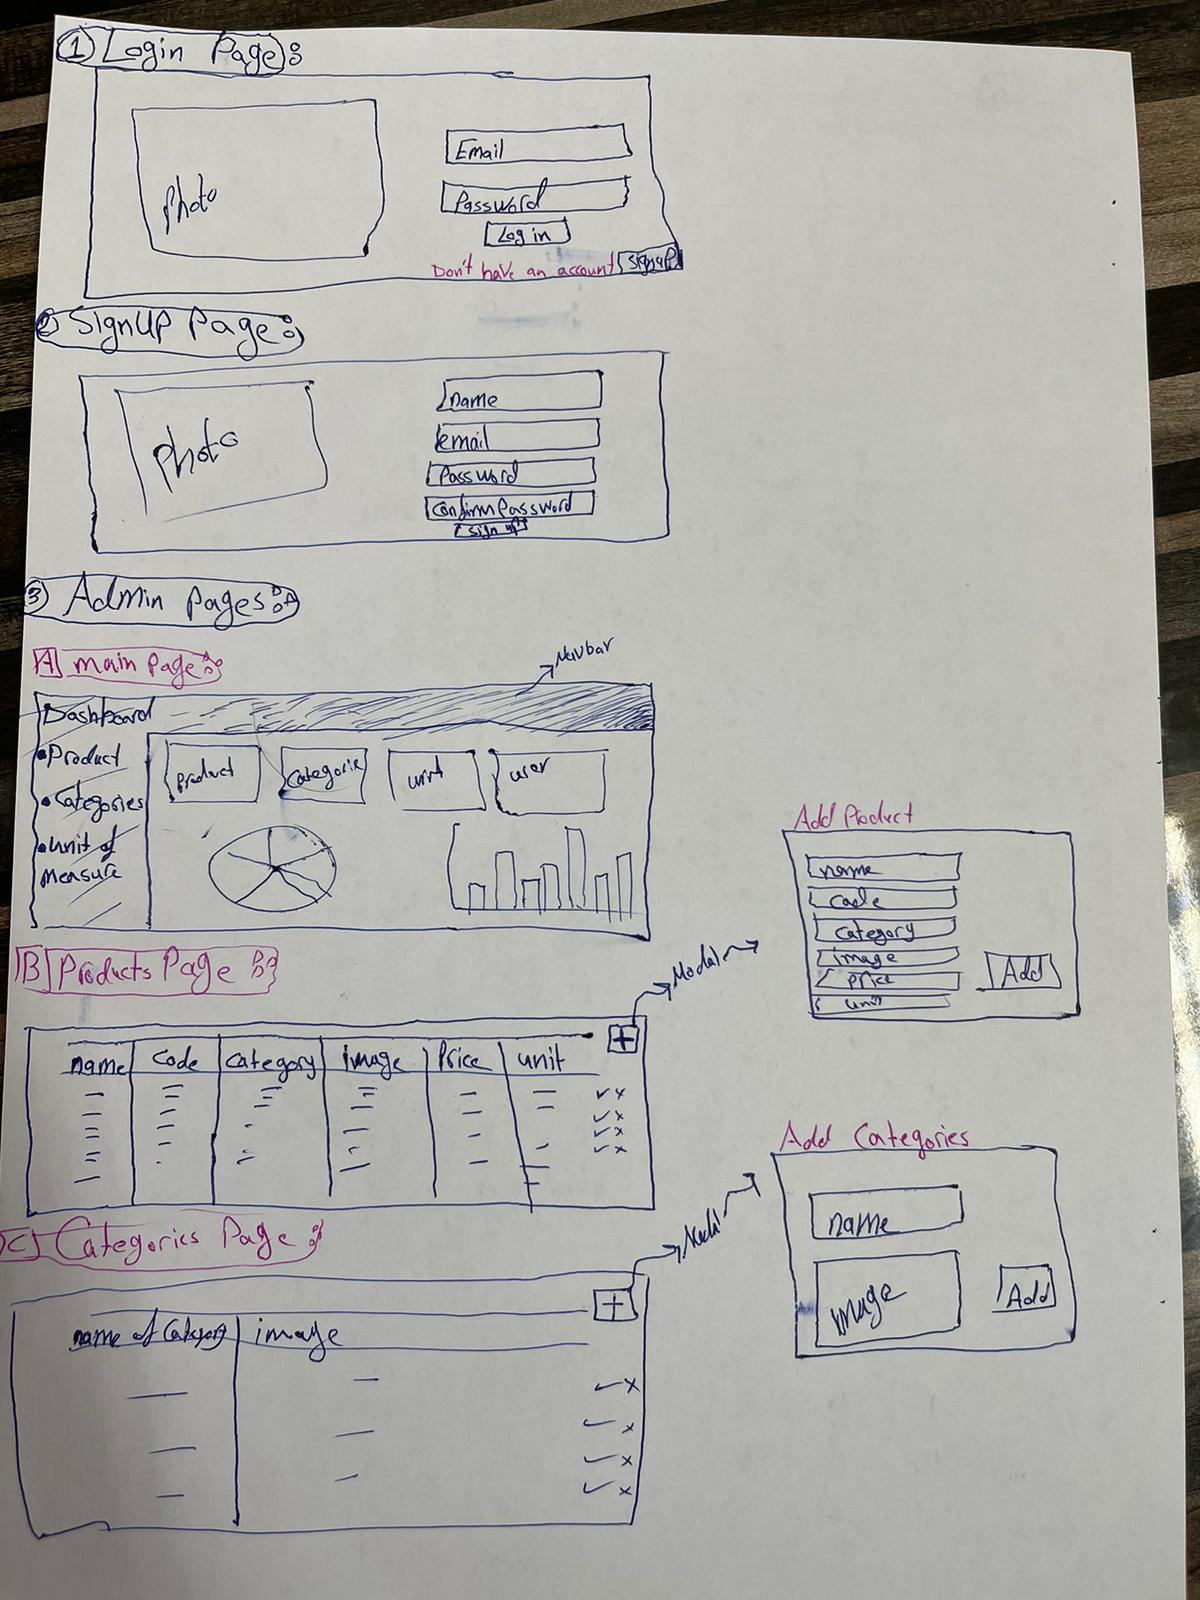 ① Login Page:
Photo
Email
Password
Log in
Don't have an account SignUP
② SignUP Page:
Photo
name
email
Password
Confirm Password
Sign up
③ Admin Pages:
A main Page:
Navbar
Dashboard
• Product
• Categories
• Unit of
measure
Product
Categorie
unit
user
B Products Page:
Modal
+
name code category image Price unit
Add Product
name
code
category
image
price
unit
Add
C Categories Page:
Modal
+
name of Category image
Add Categories
name
image
Add